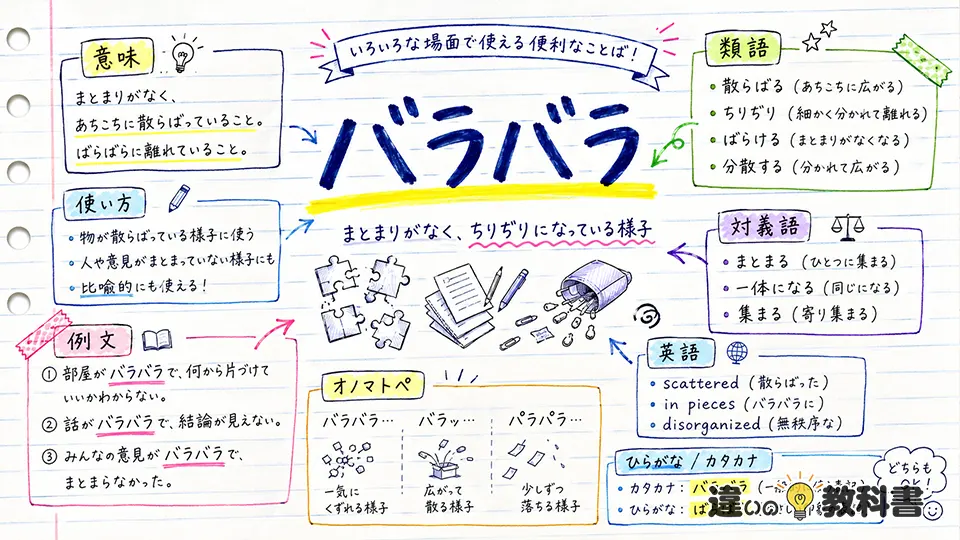 いろいろな場面で使える便利なことば！
バラバラ
まとまりがなく、ちりぢりになっている様子
意味
まとまりがなく、
あちこちに散らばっていること。
ばらばらに離れていること。
使い方
• 物が散らばっている様子に使う
• 人や意見がまとまっていない様子にも
• 比喩的にも使える！
例文
① 部屋がバラバラで、何から片づけて
いいかわからない。
② 話がバラバラで、結論が見えない。
③ みんなの意見がバラバラで、
まとまらなかった。
オノマトペ
バラバラ…
一気に
くずれる様子
バラッ…
広がって
散る様子
パラパラ…
少しずつ
落ちる様子
類語
• 散らばる（あちこちに広がる）
• ちりぢり（細かく分かれて離れる）
• ばらける（まとまりがなくなる）
• 分散する（分かれて広がる）
対義語
• まとまる（ひとつに集まる）
• 一体になる（同じになる）
• 集まる（寄り集まる）
英語
• scattered（散らばった）
• in pieces（バラバラに）
• disorganized（無秩序な）
ひらがな / カタカナ
• カタカナ：バラバラ
• ひらがな：ば
どちらも
違いの教科書